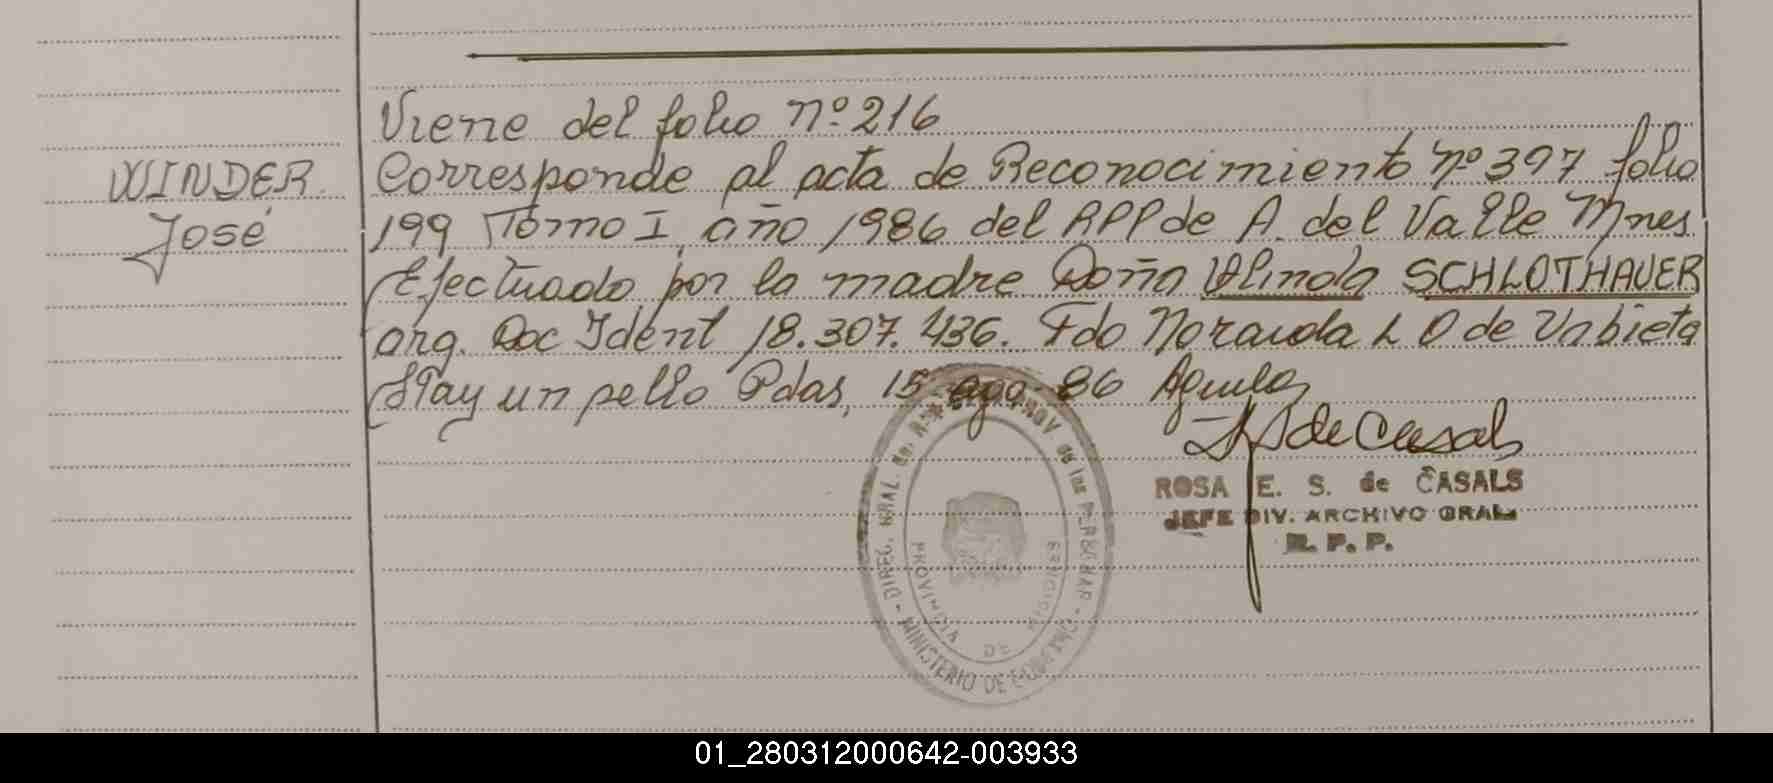 Viene del folio nº 216
WINDER José
Corresponde al acta de Reconocimiento nº 397 folio
199 Tomo I, año 1986 del RPP de A. del Valle Mnes
Efectuado por la madre Doña Olinda SCHLOTHAUER
arg. Doc Ident 18.307.436. Fdo L O de Urbieta
Hay un sello Pdas, 15-ago-86
de Casals
ROSA E. S. de CASALS
JEFE DIV. ARCHIVO GRAL
R. P. P.
DIREC. GRAL. del PROV. de las PERSONAS - MINISTERIO DE GOBIERNO
PROVINCIA DE MISIONES
01_280312000642-003933